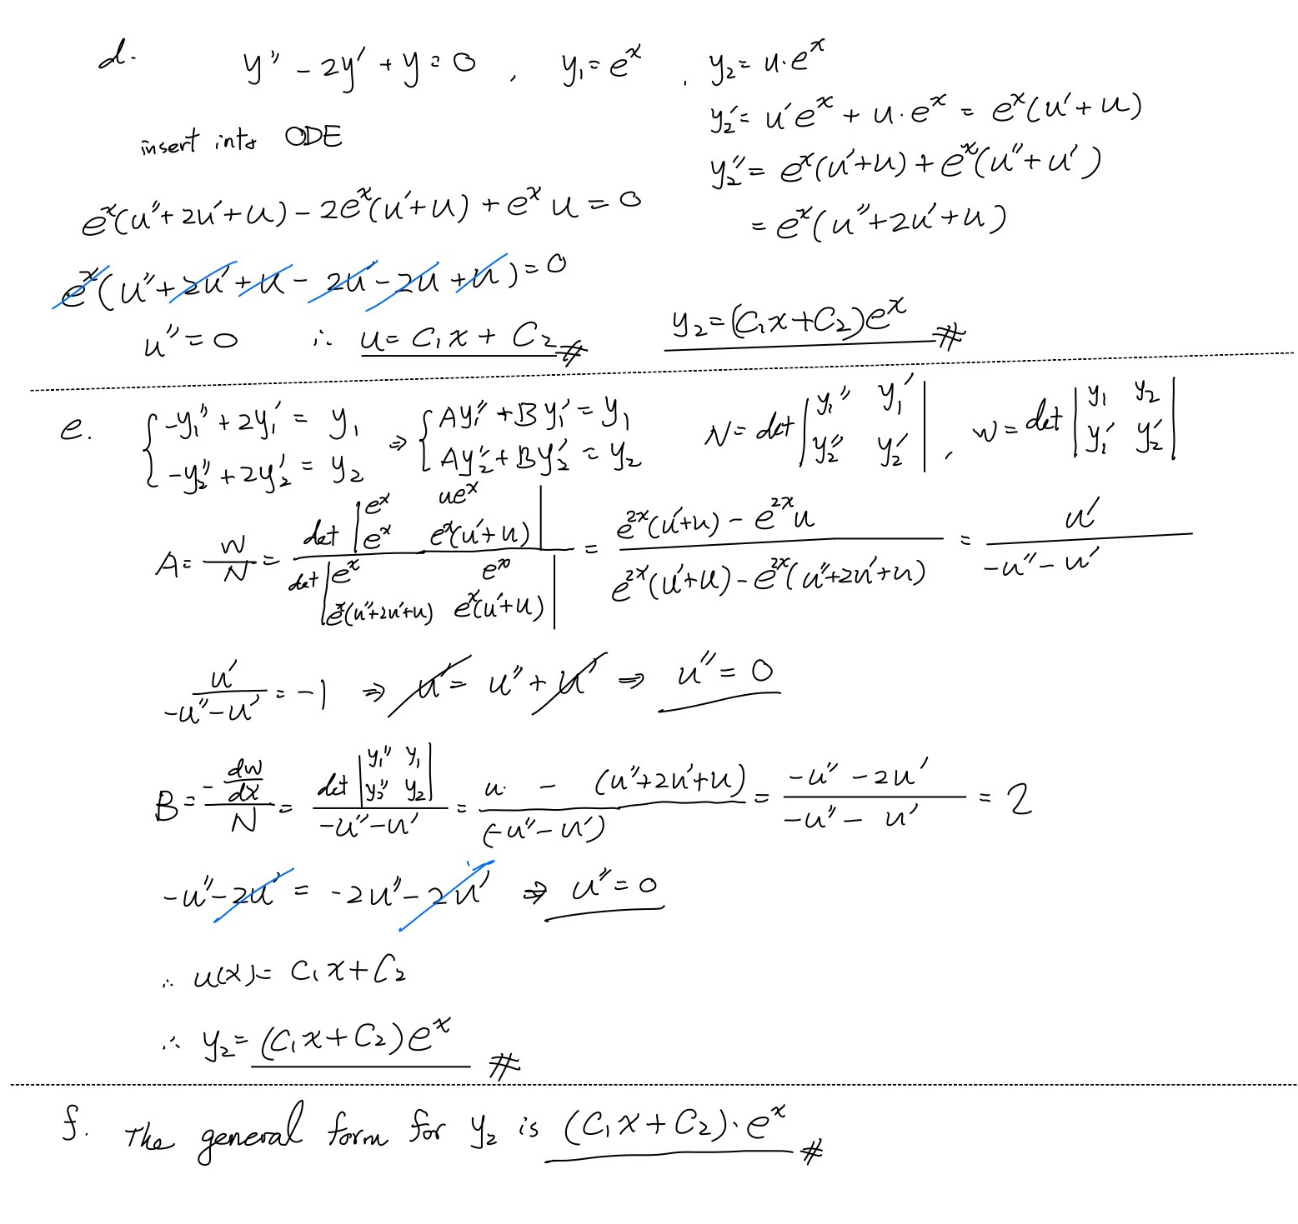 d. y'' - 2y' + y = 0 , y₁ = eˣ , y₂ = u·eˣ
y₂' = u'eˣ + u·eˣ = eˣ(u'+u)
insert into ODE
y₂'' = eˣ(u'+u) + eˣ(u''+u')
eˣ(u''+2u'+u) - 2eˣ(u'+u) + eˣu = 0
= eˣ(u''+2u'+u)
eˣ(u''+2u'+u - 2u' - 2u + u) = 0
u'' = 0 ∴ u = C₁x + C₂ # y₂ = (C₁x+C₂)eˣ #
e. { -y₁'' + 2y₁' = y₁ ⇒ { Ay₁'' + By₁' = y₁ N = det | y₁'' y₁' | , W = det | y₁ y₂ |
-y₂'' + 2y₂' = y₂ Ay₂'' + By₂' = y₂ | y₂'' y₂' | | y₁' y₂' |
A = W/N = det | eˣ ueˣ ; eˣ eˣ(u'+u) | / det | eˣ eˣ ; eˣ(u''+2u'+u) eˣ(u'+u) | = (e²ˣ(u'+u) - e²ˣu) / (e²ˣ(u'+u) - e²ˣ(u''+2u'+u)) = u' / (-u''-u')
u' / (-u''-u') = -1 ⇒ u' = u'' + u' ⇒ u'' = 0
B = (-dW/dx) / N = det | y₁'' y₁ ; y₂'' y₂ | / (-u''-u') = (u - (u''+2u'+u)) / (-u''-u') = (-u'' - 2u') / (-u'' - u') = 2
-u'' - 2u' = -2u'' - 2u' ⇒ u'' = 0
∴ u(x) = C₁x + C₂
∴ y₂ = (C₁x + C₂)eˣ #
f. The general form for y₂ is (C₁x + C₂)·eˣ #